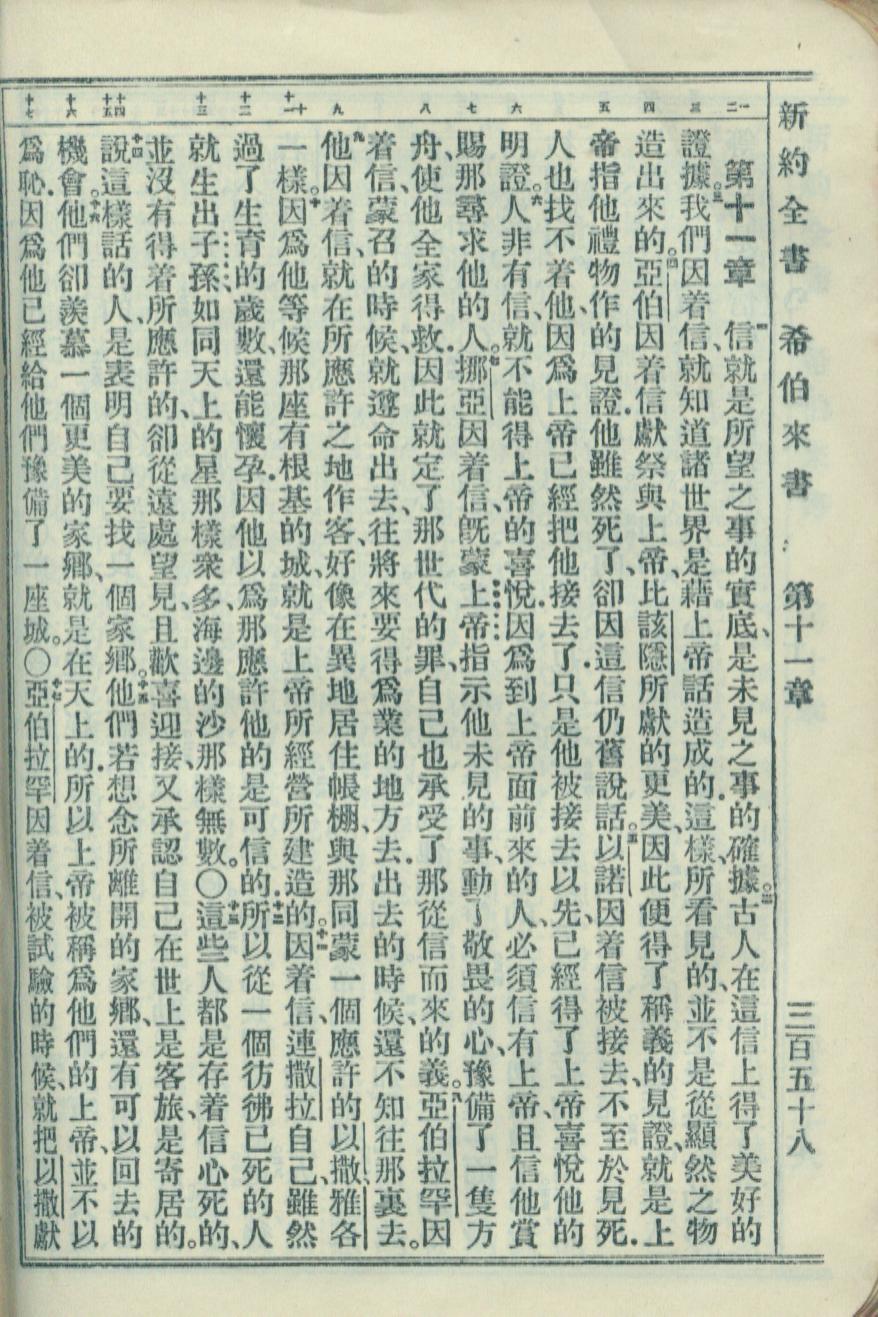 新約全書 希伯來書 第十一章 三百五十八
一二 三 四 五 六 七 八 九 十 十一 十二 十三 十四 十五 十六 十七
第十一章 一信就是所望之事的實底、是未見之事的確據。二古人在這信上得了美好的
證據。三我們因着信、就知道諸世界是藉上帝話造成的．這樣、所看見的、並不是從顯然之物
造出來的。四亞伯因着信獻祭與上帝、比該隱所獻的更美、因此便得了稱義的見證、就是上
帝指他禮物作的見證．他雖然死了、卻因這信仍舊說話。五以諾因着信被接去、不至於見死．
人也找不着他、因爲上帝已經把他接去了．只是他被接去以先、已經得了上帝喜悅他的
明證。六人非有信、就不能得上帝的喜悅．因爲到上帝面前來的人、必須信有上帝、且信他賞
賜那尋求他的人。七挪亞因着信、旣蒙上帝指示他未見的事、動了敬畏的心、豫備了一隻方
舟、使他全家得救．因此就定了那世代的罪、自己也承受了那從信而來的義。八亞伯拉罕因
着信、蒙召的時候、就遵命出去、往將來要得爲業的地方去．出去的時候、還不知往那裏去。
九他因着信、就在所應許之地作客、好像在異地居住帳棚、與那同蒙一個應許的以撒雅各
一樣。十因爲他等候那座有根基的城、就是上帝所經營所建造的。十一因着信、連撒拉自己、雖然
過了生育的歲數、還能懷孕．因他以爲那應許他的是可信的．十二所以從一個彷彿已死的人
就生出子孫、如同天上的星那樣衆多、海邊的沙那樣無數。〇十三這些人都是存着信心死的、
並沒有得着所應許的、卻從遠處望見、且歡喜迎接、又承認自己在世上是客旅、是寄居的。
十四說這樣話的人、是表明自己要找一個家鄉。十五他們若想念所離開的家鄉、還有可以回去的
機會。十六他們卻羨慕一個更美的家鄉、就是在天上的．所以上帝被稱爲他們的上帝、並不以
爲恥．因爲他已經給他們豫備了一座城。〇十七亞伯拉罕因着信、被試驗的時候、就把以撒獻